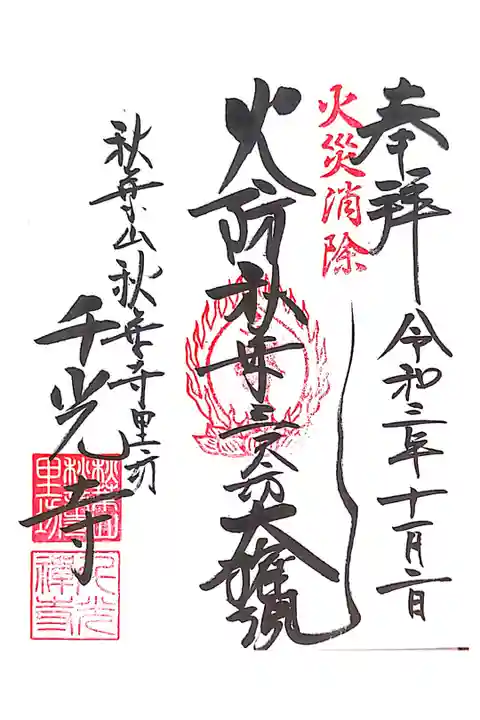 奉拝
火災消除
令和三年十一月二日
火防秋葉三尺坊大権現
秋葉山秋葉寺里坊
千光寺